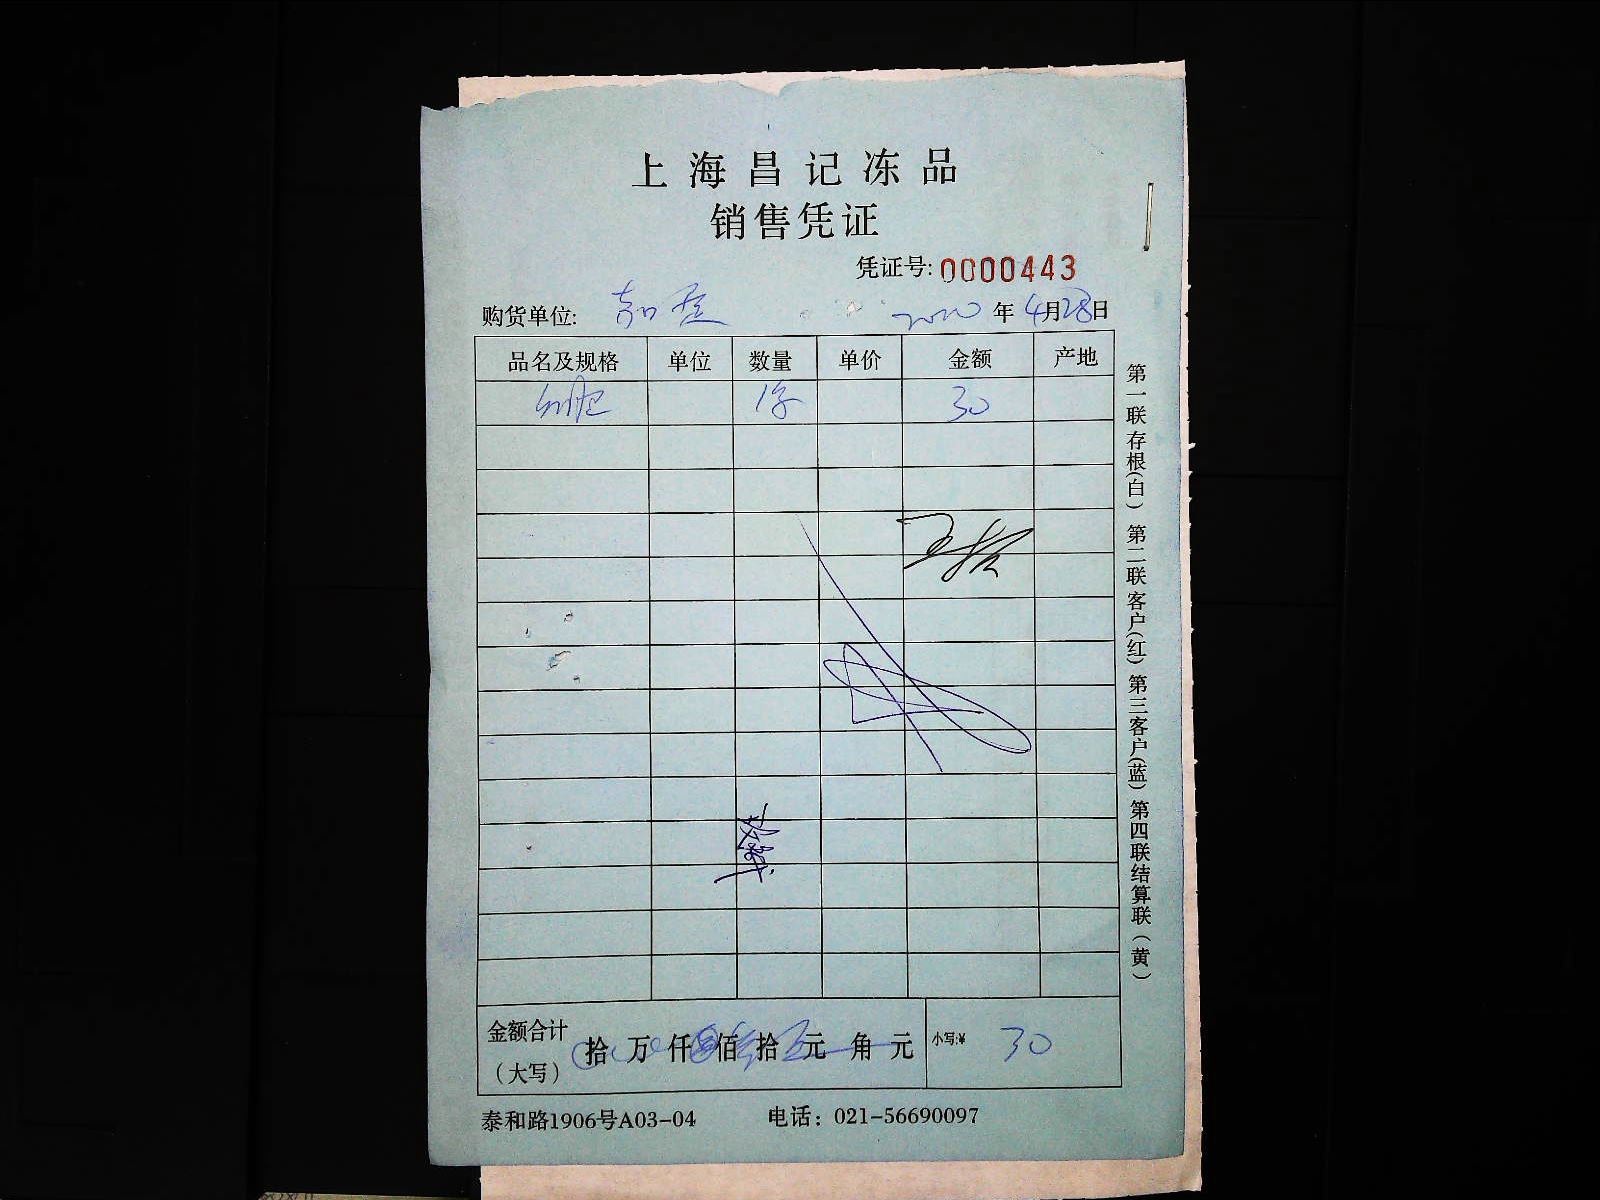 上海昌记冻品
销售凭证
凭证号:0000443
购货单位: 2020年4月28日
品名及规格 单位 数量 单价 金额 产地
30
金额合计(大写) 拾 万 仟 佰 拾 元 角 元 小写:¥ 30
泰和路1906号A03-04 电话：021-56690097
第一联存根(白) 第二联客户(红) 第三客户(蓝) 第四联结算联(黄)